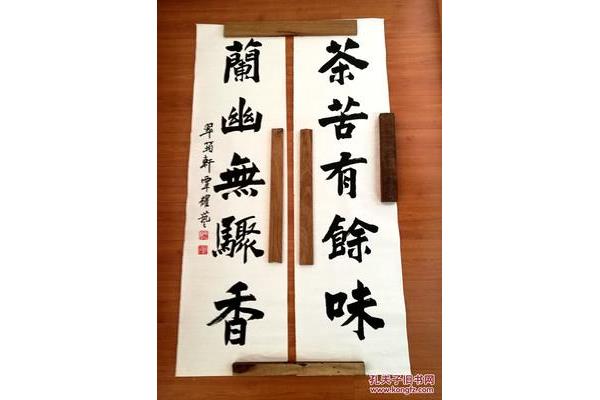 茶苦有餘味
蘭幽無驟香
翠筠軒覃耀藝
孔夫子旧书网
www.kongfz.com